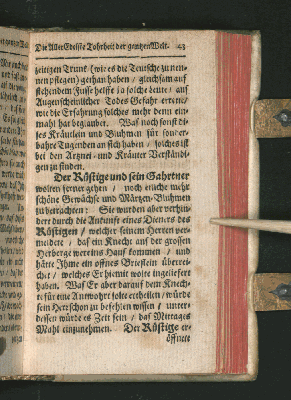 Die Aller Edelste Tohrheit der gantzen Welt. 43
zeitigen Trunk (wie es die Teutsche zu nen-
nen pflegen) gethan haben / gleichsam auf
stehendem Fusse helffe
Augenscheinlicher Todes Gefahr errette/
wie die Erfahrung solches mehr denn ein-
mahl hat bezäuber. Was noch sonst di-
ses Kräutlein und Bluhmen für sonder-
bahre Tugenden an sich haben / solches ist
bei den Artznei - und Kräuter Verständi-
gen zu finden.
Der Rüstige und sein Gafärtner
wolten ferner gehen / noch etliche mehr
schöne Gewächse und Märtzen-Bluhmen
zu betrachten: Sie wurden aber verhin-
dert durch die Ankunft eines Dieners des
Rüstigen / welcher seinem Herren ver-
meldete / daß ein Knecht aus der grossen
Herberge
hätte Ihme ein offnes Brieflein überrei-
chet / welches Er hiemit wolte eingeliefert
haben. Was Er aber darauf dem Knech-
te für eine Antwohrt solte ertheilen / würde
sein Herr schon zu befehlen wissen / unter-
dessen würde es Zeit sein / das Mittages
Mahl einzunehmen. Der Rüstige er-
öffnete